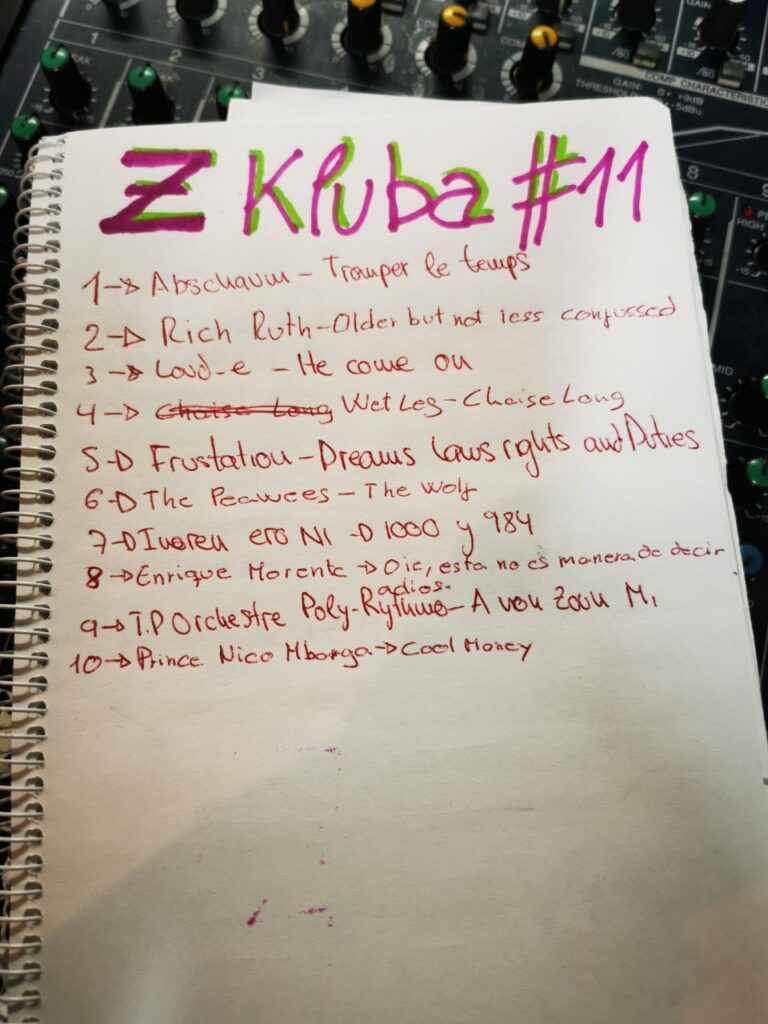 Z Kluba #11
1→ Abschaum – Tromper le temps
2→ Rich Ruth – Older but not less confussed
3→ Loud-e – He come on
4→ Chaise Long Wet Leg – Chaise Long
5→ Frustation – Dreams laws rights and Duties
6→ The Peawees – The Wolf
7→ Ivoreu ero N1 → 1000 y 984
8→ Enrique Morente → Oie, esta no es manera de decir
adios.
9→ T.P Orchestre Poly-Rythmo – A von Zoun M,
10→ Prince Nico Mbarga → Cool Money
1
2
3
8
9
GAIN
COMP CHARACTERISTIC
GAIN: 0: +9dB
THRESHOLD: -5dBu
HIGH
MID